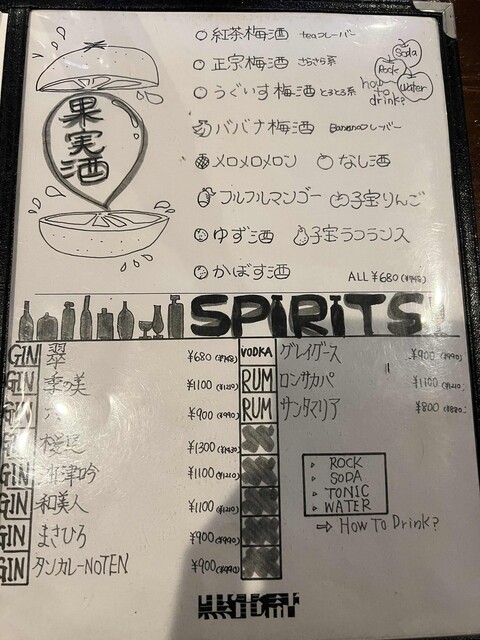 果実酒
紅茶梅酒 teaフレーバー
正宗梅酒 さらさら系
うぐいす梅酒 とろとろ系
バナナ梅酒 Bananaフレーバー
メロメロメロン なし酒
フルフルマンゴー 子宝りんご
ゆず酒 子宝ラフランス
かぼす酒
ALL ¥680(¥748)
Soda
Rock
Water
how to drink?
SPIRITS
GIN 翠 ¥680(¥748)
GIN 季の美 ¥1100(¥1210)
GIN 六 ¥900(¥990)
GIN 桜尾 ¥1300(¥1430)
GIN 津吟 ¥1100(¥1210)
GIN 和美人 ¥1100(¥1210)
GIN まさひろ ¥900(¥990)
GIN タンカレーNOTEN ¥900(¥990)
VODKA グレイグース ¥900(¥990)
RUM ロンサカパ ¥1100(¥1210)
RUM サンタマリア ¥800
ROCK
SODA
TONIC
WATER
⇒ How To Drink?